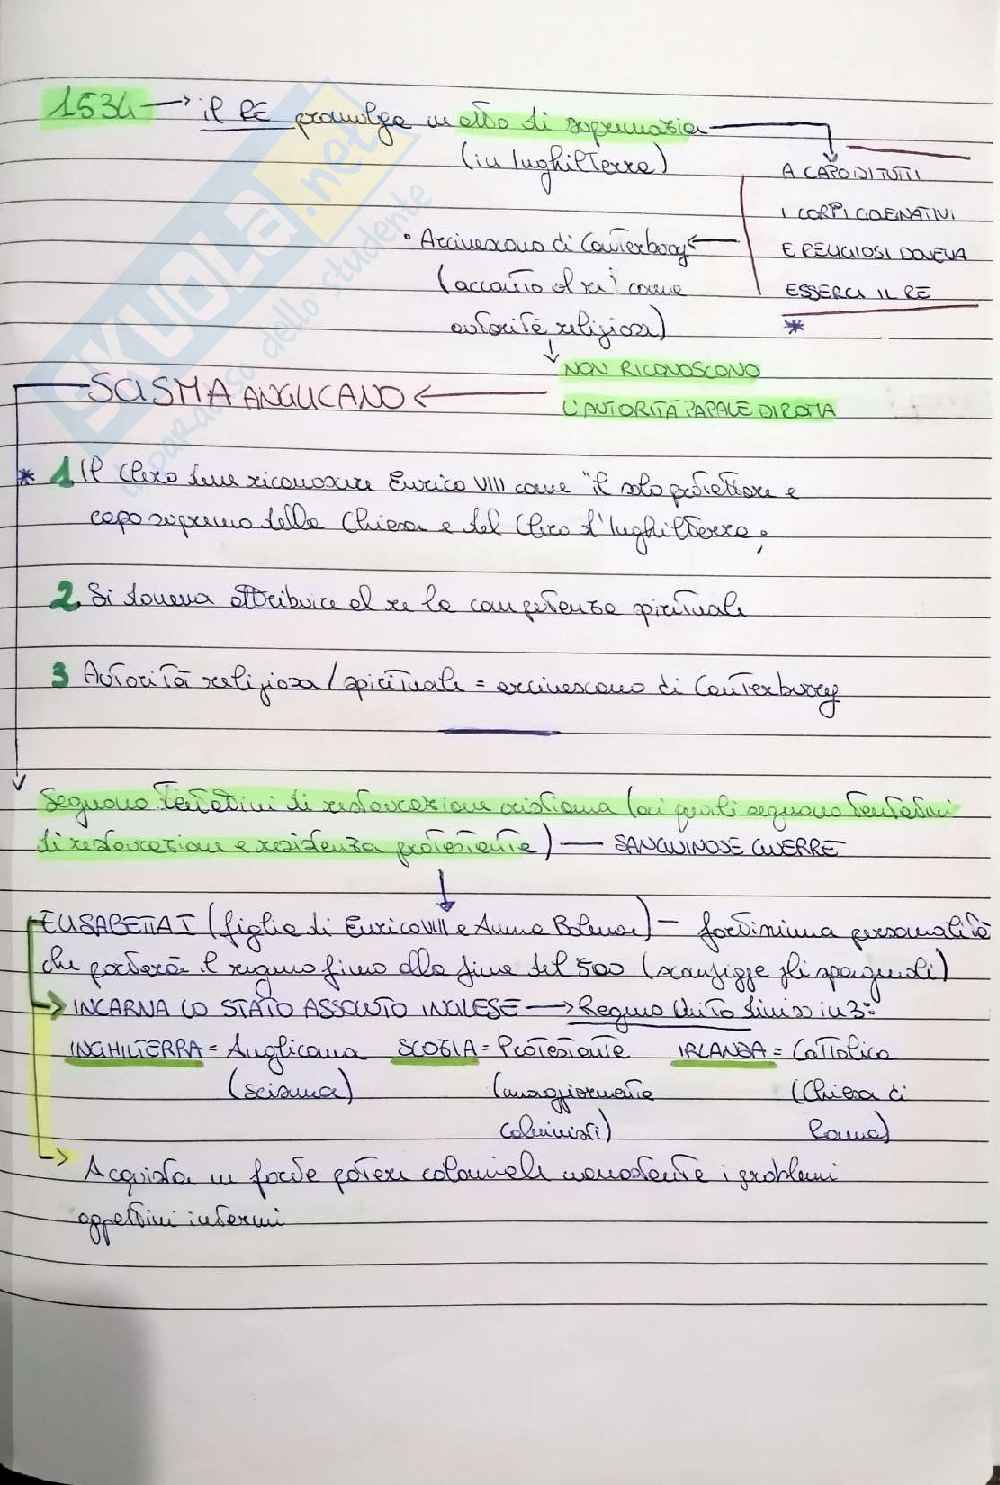 1534 → il RE promulga un atto di supremazia
(in Inghilterra)
A CAPO DI TUTTI
I CORPI GOVERNATIVI
E RELIGIOSI DOVEVA
ESSERCI IL RE
*
• Arcivescovo di Canterbury ←
(accanto al re come
autorità religiosa)
NON RICONOSCONO
L'AUTORITÀ PAPALE DI ROMA
SCISMA ANGLICANO ←
* 1 Il Clero deve riconoscere Enrico VIII come "il solo protettore e
capo supremo della Chiesa e del Clero d'Inghilterra;
2. Si doveva attribuire al re la competenza spirituale
3 Autorità religiosa/spirituale = arcivescovo di Canterbury
Seguono tentativi di restaurazione cristiana (ai quali seguono tentativi
di restaurazione e resistenza protestante) — SANGUINOSE GUERRE
ELISABETTA I (figlia di Enrico VIII e Anna Bolena) — fortissima personalità
che porterà il regno fino alla fine del 500 (sconfigge gli spagnoli)
→ INCARNA LO STATO ASSOLUTO INGLESE → Regno Unito diviso in 3:
INGHILTERRA = Anglicana SCOZIA = Protestante IRLANDA = Cattolica
(scisma) (maggiormente (Chiesa di
calvinisti) Roma)
→ Acquista un forte potere coloniale nonostante i problemi
oggettivi interni
SKUOLA.net
il paradiso dello studente